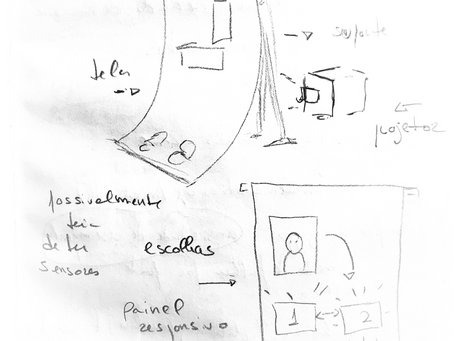 suporte
tela
projetor
possivelmente
teria
de ter
sensores
escolhas
painel
responsivo
1
2